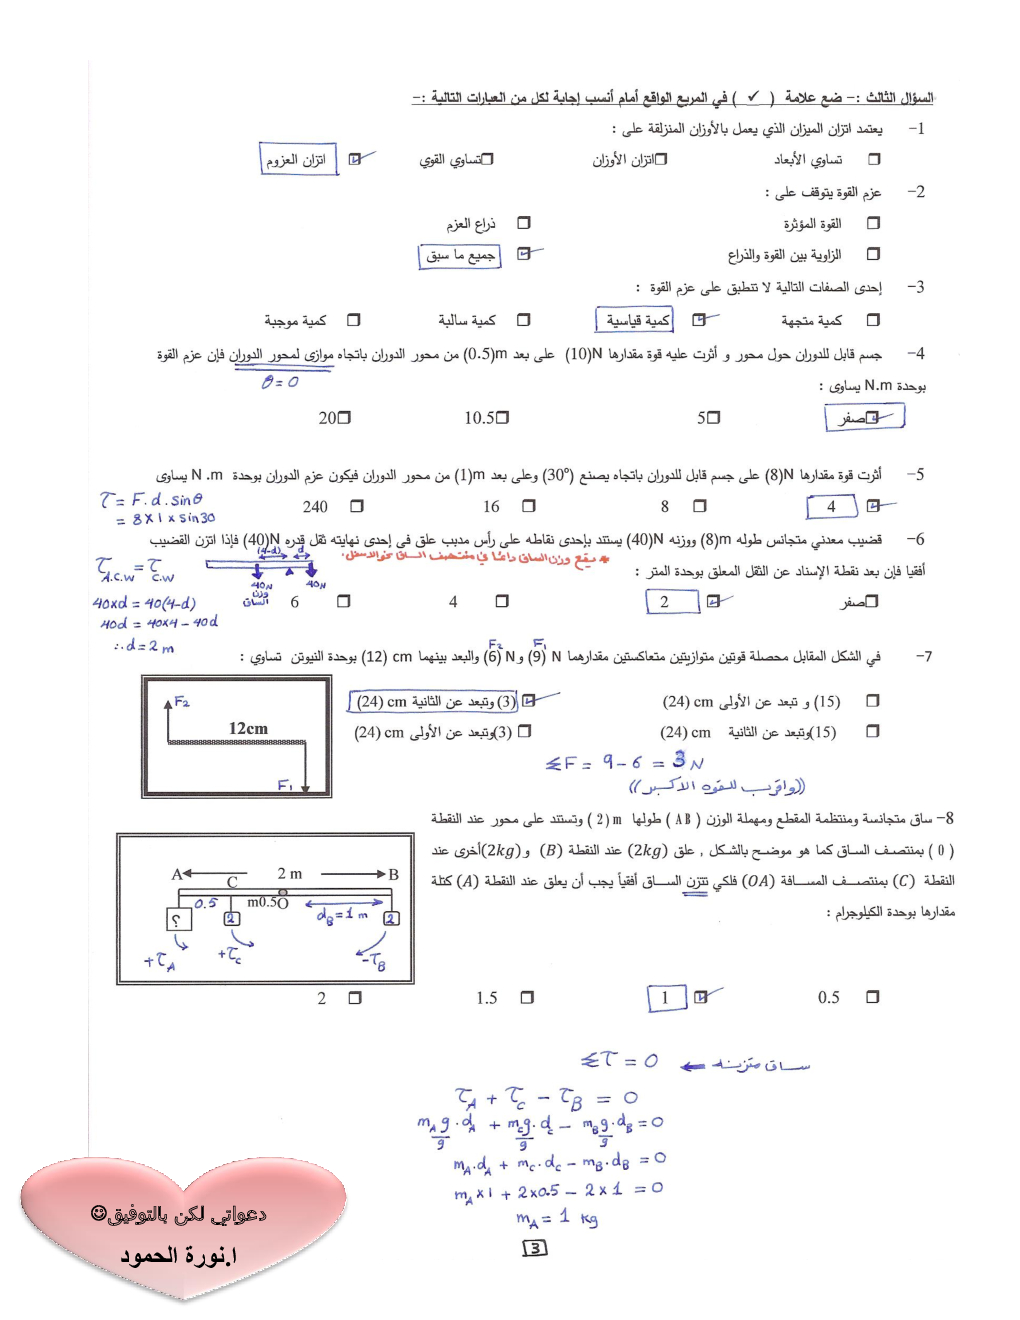 السؤال الثالث :- ضع علامة ( ✓ ) في المربع الواقع أمام أنسب إجابة لكل من العبارات التالية :-
1- يعتمد اتزان الميزان الذي يعمل بالأوزان المنزلقة على :
تساوي الأبعاد اتزان الأوزان تساوي القوي اتزان العزوم
2- عزم القوة يتوقف على :
القوة المؤثرة ذراع العزم
الزاوية بين القوة والذراع جميع ما سبق
3- إحدى الصفات التالية لا تنطبق على عزم القوة :
كمية متجهة كمية قياسية كمية سالبة كمية موجبة
4- جسم قابل للدوران حول محور و أثرت عليه قوة مقدارها N(10) على بعد m(0.5) من محور الدوران باتجاه موازى لمحور الدوران فإن عزم القوة
θ = 0
بوحدة N.m يساوى :
صفر 5 10.5 20
5- أثرت قوة مقدارها N(8) على جسم قابل للدوران باتجاه يصنع (30°) وعلى بعد m(1) من محور الدوران فيكون عزم الدوران بوحدة N .m يساوى
τ = F. d. sinθ
= 8 x 1 x sin30
4 8 16 240
6- قضيب معدني متجانس طوله m(8) ووزنه N(40) يستند بإحدى نقاطه على رأس مدبب علق في إحدى نهايته ثقل قدره N(40) فإذا اتزن القضيب
* يقع وزن الساق دائما في منتصف الساق نحو الاسفل.
أفقيا فإن بعد نقطة الإسناد عن الثقل المعلق بوحدة المتر :
(4-d) d
40N 40N
وزن
الساق
τ A.C.W = τ C.W
40xd = 40(4-d)
40d = 40x4 - 40d
∴ d = 2 m
صفر 2 4 6
F₂ F₁
7- في الشكل المقابل محصلة قوتين متوازيتين متعاكستين مقدارهما N (9) و N (6) والبعد بينهما cm (12) بوحدة النيوتن تساوي :
(15) و تبعد عن الأولى cm (24) (3) وتبعد عن الثانية cm (24)
(15)وتبعد عن الثانية cm (24) (3)وتبعد عن الأولى cm (24)
F₂
12cm
F₁
ΣF = 9 - 6 = 3 N
((واقرب للقوه الاكبر))
8- ساق متجانسة ومنتظمة المقطع ومهملة الوزن ( AB ) طولها m(2 ) وتستند على محور عند النقطة
( 0 ) بمنتصف الساق كما هو موضح بالشكل , علق (2kg) عند النقطة (B) و(2kg)أخرى عند
النقطة (C) بمنتصف المسافة (OA) فلكي تتزن الساق أفقياً يجب أن يعلق عند النقطة (A) كتلة
مقدارها بوحدة الكيلوجرام :
A 2 m B
C
0.5 m0.5O d_B = 1 m
؟ 2 2
+τ_A +τ_C -τ_B
0.5 1 1.5 2
ساق متزنه ← Στ = 0
τ_A + τ_C - τ_B = 0
m_A g . d_A / g + m_C g . d_C / g - m_B g . d_B / g = 0
m_A . d_A + m_C . d_C - m_B . d_B = 0
m_A x 1 + 2x0.5 - 2x1 = 0
m_A = 1 kg
3
دعواتي لكن بالتوفيق☺
ا.نورة الحمود